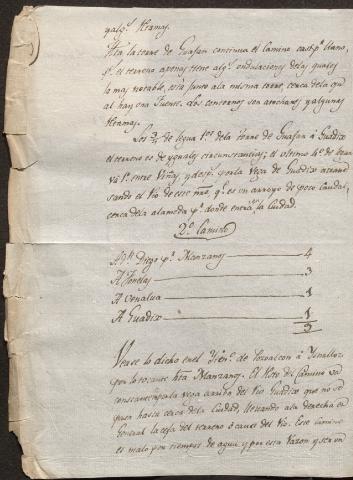 y algs. Ramas.
Hta. la torre de Guafan continua el camino casi pr. llano,
pr. el terreno apenas tiene algs. ondulaciones delas quales
la mas notable, està junto ala misma torre, cerca dela qe.
al hay una Fuente. Los contornos son atochares y algunas
Ramas.
Los 3/4 de legua 1os. dela Torre de Guafan à Guadix
el terreno es de yguales circunstancias; el ultimo 4o. de hora
và 1o. entre Viñas, y desps. por la Vega de Guadix atrave
sando el Rio de este nre. qe. es un arroyo de poco caudal,
cerca dela alameda pr. donde entra la Ciudad.
2o. Camino
A Dn. Diego pr. Manzano 4
A Fonelas 3
A Venalua 1
A Guadix 1
9
Vease lo dicho en el de Torvizcon à Yznalloz
por lo recorre hta. Manzano. El Resto del Camino va
constantemte. por la vega arriba del Rio Guadix que no se
pasa hasta cerca dela Ciudad, llevando ala derecha en
General la ceja del terreno ò cauce del Rio. Este camino
es malo por tiempos de agua y por esta razon y ser un